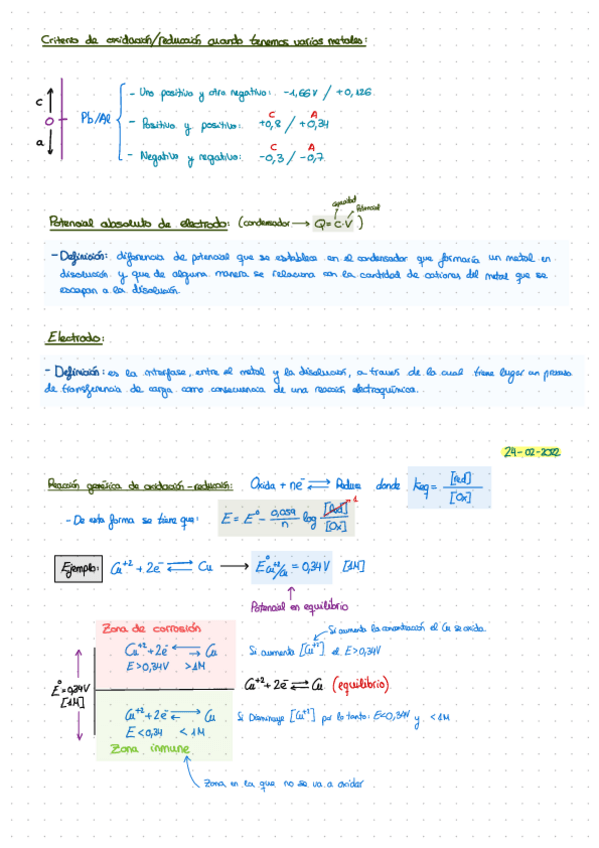 Criterio de oxidación/reducción cuando tenemos varios metales:
c
0
a
Pb/Al
- Uno positivo y otro negativo: -1,66V / +0,126
C A
- Positivo y positivo: +0,8 / +0,34
C A
- Negativo y negativo: -0,3 / -0,7
capacidad
Potencial
Potencial absoluto de electrodo: (condensador → Q = C·V)
- Definición: diferencia de potencial que se establece en el condensador que formaría un metal en
disolución y que de alguna manera se relaciona con la cantidad de cationes del metal que se
escapan a la disolución.
Electrodo:
- Definición: es la interfase, entre el metal y la disolución, a través de la cual tiene lugar un proceso
de transferencia de carga como consecuencia de una reacción electroquímica.
24-02-2022
Reacción genérica de oxidación-reducción: Oxida + ne⁻ ⇄ Reduce donde Keq = [red]/[Ox]
- De esta forma se tiene que: E = E° - 0,059/n log [Red]/[Ox] = 1
Ejemplo: Cu⁺² + 2e⁻ ⇄ Cu → E° Cu⁺²/Cu = 0,34V [1M]
Potencial en equilibrio
Zona de corrosión
Si aumento la concentración el Cu se oxida.
Cu⁺² + 2e⁻ ⇄ Cu Si aumento [Cu⁺²] el E>0,34V
E>0,34V >1M
E°=0,34V
[1M]
Cu⁺² + 2e⁻ ⇄ Cu (equilibrio)
Cu⁺² + 2e⁻ ⇄ Cu Si Disminuye [Cu⁺²] por lo tanto: E<0,34V y <1M
E<0,34 <1M
Zona inmune
Zona en la que no se va a oxidar